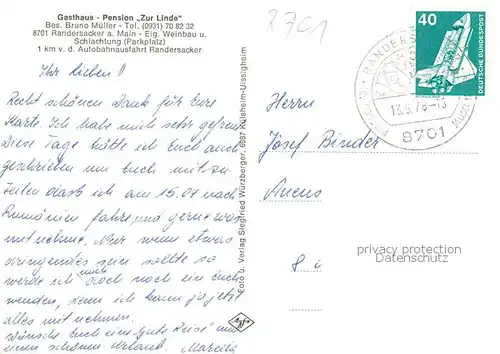 Gasthaus - Pension „Zur Linde"
Bes. Bruno Müller - Tel. (0931) 70 82 32
8701 Randersacker a. Main - Eig. Weinbau u.
Schlachtung (Parkplatz)
1 km v. d. Autobahnausfahrt Randersacker
Ihr Lieben!
Recht schönen Dank für Eure
Karte. Ich habe mich sehr gefreut
Diese Tage hätte ich Euch auch
geschrieben um Euch mitzu-
teilen dass ich am 15.07 nach
Rumänien fahre, und gerne was
mitnehme. Nur wenn etwas
dringendes sein sollte so
werde ich mich doch noch an Euch
wenden, denn ich kann ja jetzt
alles mitnehmen.
Wünsche Euch eine gute Reise und
einen schönen Urlaub.
Foto u. Verlag Siegfried Würzberger, 6987 Külsheim-Uissigheim
Agfa
2701
40
DEUTSCHE BUNDESPOST
RANDERS
13.6.78-13
8701
Herrn
Josef Binder
privacy protection
Datenschutz